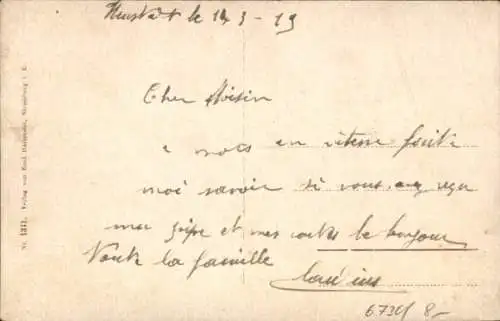 le 14 3 - 19
Cher Voisin
2 mots en vitesse
moi savoir si vous avez reçu
ma et mes cartes le bonjour
Toute la famille
Nr. 1311. Verlag von Emil Hartmann, Strassburg i. E.
8-